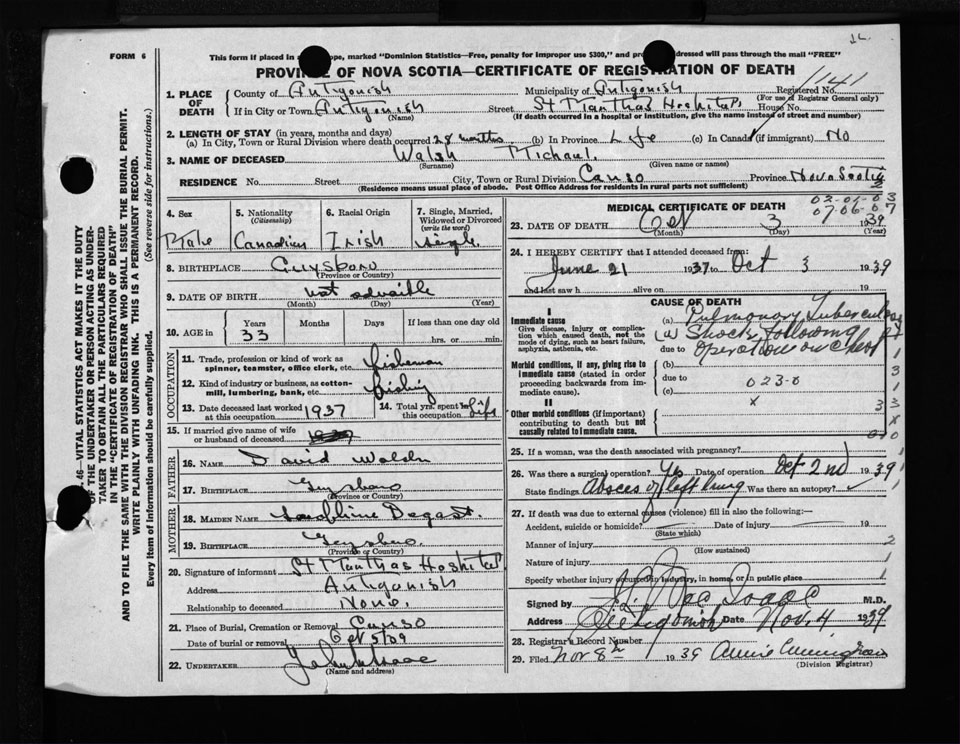 1L.
FORM 6
This form if placed in ope, marked "Dominion Statistics—Free, penalty for improper use $300," and pr dressed will pass through the mail "FREE"
PROVINCE OF NOVA SCOTIA—CERTIFICATE OF REGISTRATION OF DEATH
1141
1. PLACE OF DEATH
County of Antigonish Municipality of Antigonish Registered No.
(For use of Registrar General only)
If in City or Town Antigonish Street St Marthas Hoshital House No.
(Name) (If death occurred in a hospital or institution, give the name instead of street and number)
2. LENGTH OF STAY (in years, months and days)
(a) In City, Town or Rural Division where death occurred 28 months (b) In Province Life (c) In Canada (if immigrant) No
3. NAME OF DECEASED Walsh Michael.
(Surname) (Given name or names)
RESIDENCE No. Street City, Town or Rural Division Canso Province Nova Scotia
(Residence means usual place of abode. Post Office Address for residents in rural parts not sufficient)
4. Sex 5. Nationality (Citizenship) 6. Racial Origin 7. Single, Married, Widowed or Divorced (write the word)
Male Canadian Irish single
8. BIRTHPLACE Guysboro
(Province or Country)
9. DATE OF BIRTH not
(Month) (Day) (Year)
10. AGE in Years Months Days If less than one day old
33 hrs. or min.
OCCUPATION
11. Trade, profession or kind of work as spinner, teamster, office clerk, etc. fisherman
12. Kind of industry or business, as cotton-mill, lumbering, bank, etc. fishing
13. Date deceased last worked at this occupation 1937 14. Total yrs. spent in this occupation life
15. If married give name of wife or husband of deceased 1937
FATHER
16. NAME David Walsh
17. BIRTHPLACE Guysboro
(Province or Country)
MOTHER
18. MAIDEN NAME
19. BIRTHPLACE Guysboro
(Province or Country)
20. Signature of informant St Marthas Hoshital
Address Antigonish
Relationship to deceased None.
21. Place of Burial, Cremation or Removal Canso
Date of burial or removal Oct 5/39
22. UNDERTAKER
(Name and address)
MEDICAL CERTIFICATE OF DEATH
23. DATE OF DEATH Oct 3 1939
(Month) (Day) (Year)
24. I HEREBY CERTIFY that I attended deceased from:
June 21 1937 to Oct 3 1939
and last saw h alive on 19
CAUSE OF DEATH
I
Immediate cause (a) Pulmonary Tuberculosis
Give disease, injury or complication which caused death, not the mode of dying, such as heart failure, asphyxia, asthenia, etc.
(a) Shock following
due to operation on chest
Morbid conditions, if any, giving rise to immediate cause (stated in order proceeding backwards from immediate cause)
(b)
due to 023-0
(c)
II
Other morbid conditions (if important) contributing to death but not causally related to immediate cause.
25. If a woman, was the death associated with pregnancy?
26. Was there a surgical operation? Yes Date of operation Oct 2nd 1939
State findings Absces of left lung Was there an autopsy?
27. If death was due to external causes (violence) fill in also the following:—
Accident, suicide or homicide? Date of injury 19
(State which)
Manner of injury
(How sustained)
Nature of injury
Specify whether injury occurred in industry, in home, or in public place
Signed by M.D.
Address Antigonish Date Nov. 4 1939
28. Registrar's Record Number
29. Filed Nov 8th 1939
(Division Registrar)
46—VITAL STATISTICS ACT MAKES IT THE DUTY
OF THE UNDERTAKER OR PERSON ACTING AS UNDER-
TAKER TO OBTAIN ALL THE PARTICULARS REQUIRED
IN THE "CERTIFICATE OF REGISTRATION OF DEATH"
AND TO FILE THE SAME WITH THE DIVISION REGISTRAR WHO SHALL ISSUE THE BURIAL PERMIT.
WRITE PLAINLY WITH UNFADING INK. THIS IS A PERMANENT RECORD.
Every item of Information should be carefully supplied. (See reverse side for instructions.)